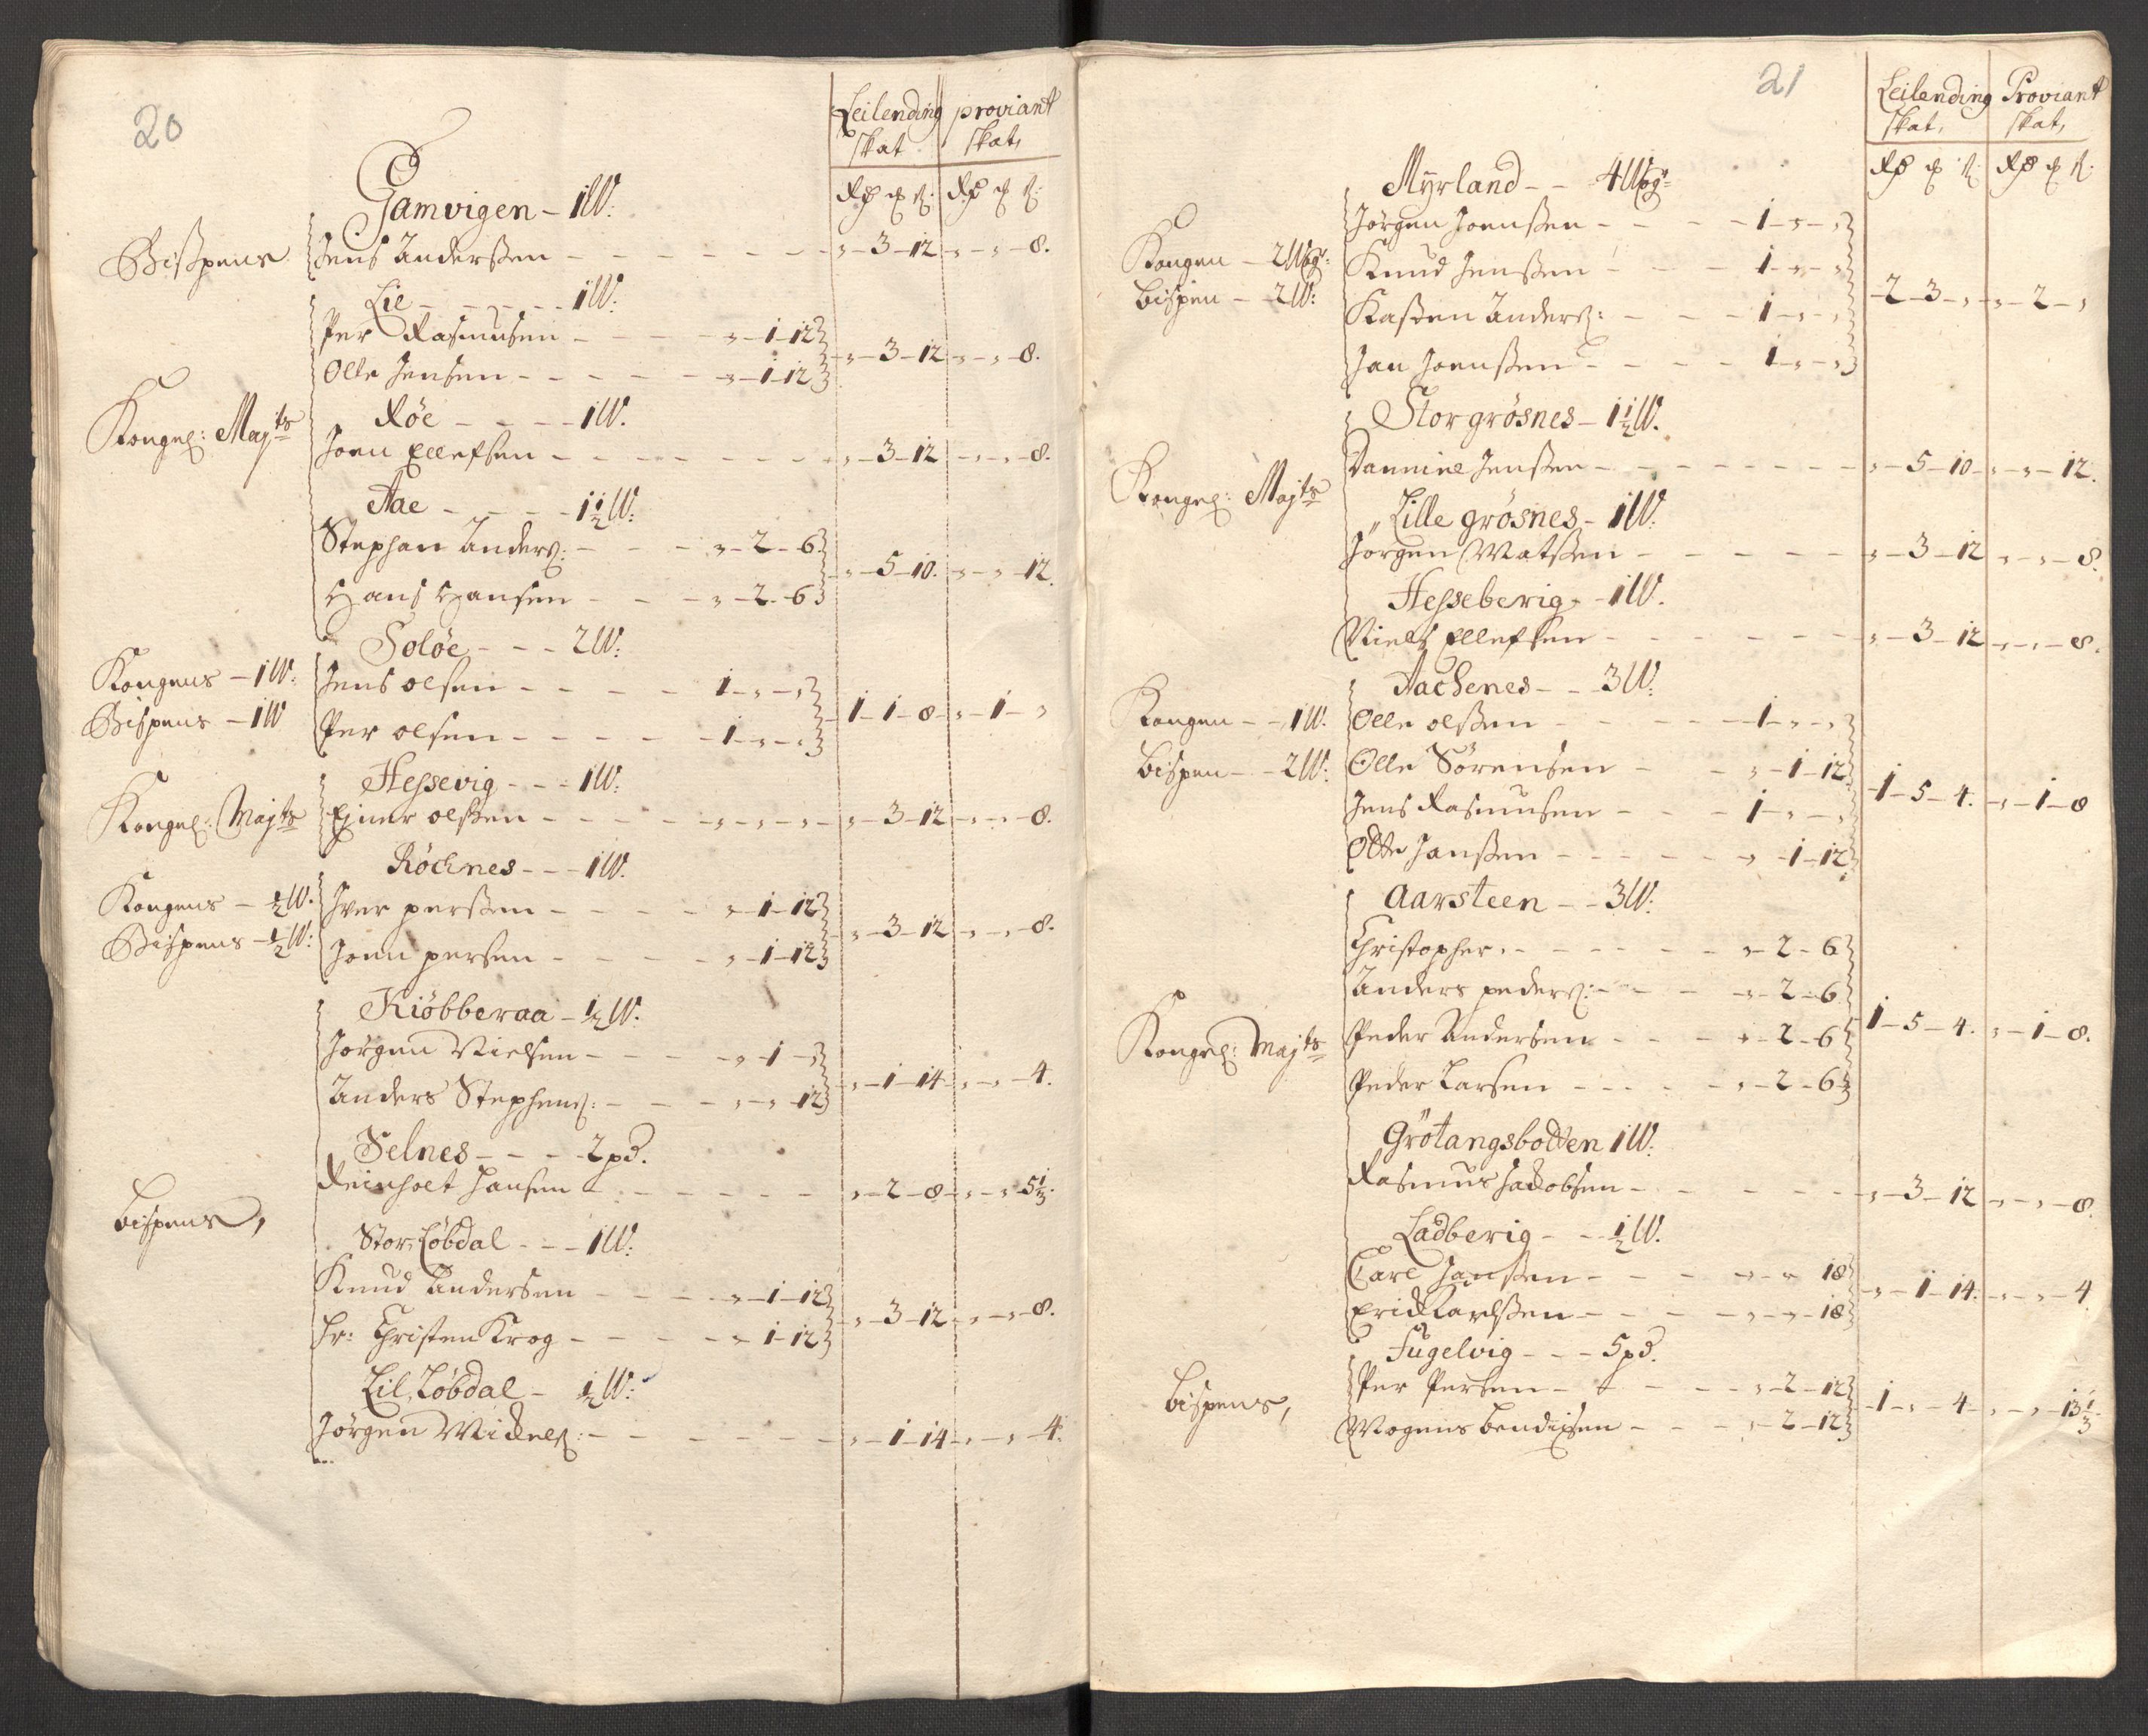 20
Leilending proviant
skat skat,
Rdr ort s: Rdr ort s:
Gamvigen - 1 W:
Bispens Jens Anderßen - - - - - - " - 3 - 12 - " - " - 8.
Lie - - - - 1 W:
Per Rasmusen - - - " - 1 - 12
Olle Jensen - - - - " - 1 - 12 " - 3 - 12 - " - " - 8.
Kongel: Majts Røe - - - - 1 W.
Joen Ellefsen - - - - - - " - 3 - 12 - " - " - 8.
Aae - - - - 1½ W:
Stephan Anders: - - - " - 2 - 6
Hans Hansen - - - " - 2 - 6 " - 5 - 10. " - " - 12.
Soløe - - - 2 W:
Kongens - 1 W: Jens olsen - - - - 1 - " - "
Bispens - 1 W Per olsen - - - - - 1 - " - " 1 - 1 - 8 - " - 1 - "
Hessevig - - - 1 W:
Kongel: Majts Ejner olßen - - - - " - " - " - " - 3 - 12 - " - " - 8.
Røchnes - - - 1 W.
Kongens - ½ W. Iver perßen - - - - " - 1 - 12
Bispens - ½ W: Joen persen - - - - " - 1 - 12 " - 3 - 12 - " - " - 8.
Kiøbberaa - ½ W:
Jørgen Nielsen - - - - " - 1 - "
Anders Stephens: - - - " - " - 12 " - 1 - 14 - " - " - 4.
Selnes - - - - 2 pd.
Bispens, Reinholt Hansen - - - - - " - 2 - 8 - " - " - 5⅓.
Stor Løbdal - - - 1 W:
Knud Andersen - - - " - 1 - 12
Hr: Christen Krog - - - - " - 1 - 12 " - 3 - 12 - " - " - 8.
Lil Løbdal - ½ W:
Jørgen Mickels: - - - - - - " - 1 - 14 - " - " - 4.
21
Leilending Proviant
skat, skat,
Rdr ort s: Rdr ort s:
Myrland - - 4 Wogr
Jørgen Joenßen - - - - 1 - " - "
Kongen - 2 Wogr: Knud Jenßen - - - 1 - " - "
Bispen - 2 W: Kasten Anders: - - - 1 - " - " 2 - 3 - " - " - 2 - "
Jan Joenßen - - - - 1 - " - "
Stor grøsnes - 1½ W.
Kongel: Majts Dannine Jenßen - - - - - - " - 5 - 10 - " - " - 12.
Lille grøsnes - 1 W:
Jørgen Matßen - - - - - " - 3 - 12 " - " - 8.
Hesseberig - - 1 W.
Niels Ellefsen - - - - - - " - 3 - 12 - " - " - 8.
Aachenes - - 3 W:
Kongen - - 1 W. Olle olßen - - - - 1 - " - "
Bispen - - 2 W: Olle Sørensen - - " - 1 - 12
Jens Rasmusen - - - 1 - " - " 1 - 5 - 4. " - 1 - 8
Olle Janßen - - - - - " - 1 - 12
Aarsteen - - 3 W:
Christopher - - - - - - " - 2 - 6
Anders peders: - - - " - 2 - 6
Kongel: Majts Peder Andersen - - - " - 2 - 6 1 - 5 - 4. " - 1 - 8.
Peder Larsen - - - - " - 2 - 6
Grøtangsbotten 1 W:
Rasmus Jackobsen - - - - - " - 3 - 12 " - " - 8.
Ladberig - - ½ W.
Carl Janßen - - - " - " 18
Erick Carlßen - - - - " - " - 18 " - 1 - 14. " - " - 4
Fugelvig - - - 5 pd.
Bispens, Per Persen - - - - " - 2 - 12
Mogens bendixen - - - " - 2 - 12 1 - " - 4 - " - " - 13⅓